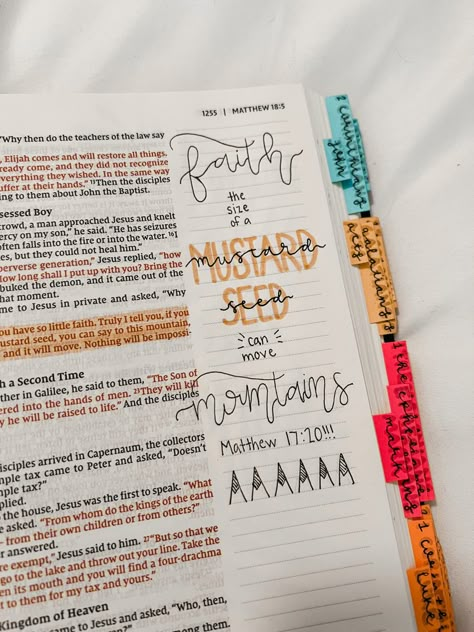 1255 | MATTHEW 18:5
"Why then do the teachers of the law say
Elijah comes and will restore all things.
already come, and they did not recognize
everything they wished. In the same way
suffer at their hands." 13Then the disciples
ing to them about John the Baptist.
sessed Boy
crowd, a man approached Jesus and knelt
ercy on my son," he said. "He has seizures
often falls into the fire or into the water.
es, but they could not heal him."
perverse generation," Jesus replied, "how
How long shall I put up with you? Bring the
buked the demon, and it came out of the
hat moment.
me to Jesus in private and asked, "Why
you have so little faith. Truly I tell you, if
ustard seed, you can say to this mountain,
and it will move. Nothing will be impossi-
h a Second Time
ther in Galilee, he said to them, "The Son of
ered into the hands of men. 23They will kill
y he will be raised to life." And the disciples
isciples arrived in Capernaum, the collectors
mple tax came to Peter and asked, "Doesn't
mple tax?"
plied.
o the house, Jesus was the first to speak. "What
e asked. "From whom do the kings of the earth
— from their own children or from others?"
r answered.
exempt," Jesus said to him. 27"But so that we
go to the lake and throw out your line. Take the
en its mouth and you will find a four-drachma
to them for my tax and yours."
Kingdom of Heaven
me to Jesus and asked, "Who, then,
faith
the
size
of a
MUSTARD
mustard
SEED
seed
can
move
mountains
Matthew 17:20!!!
john
galatians
acts
luke